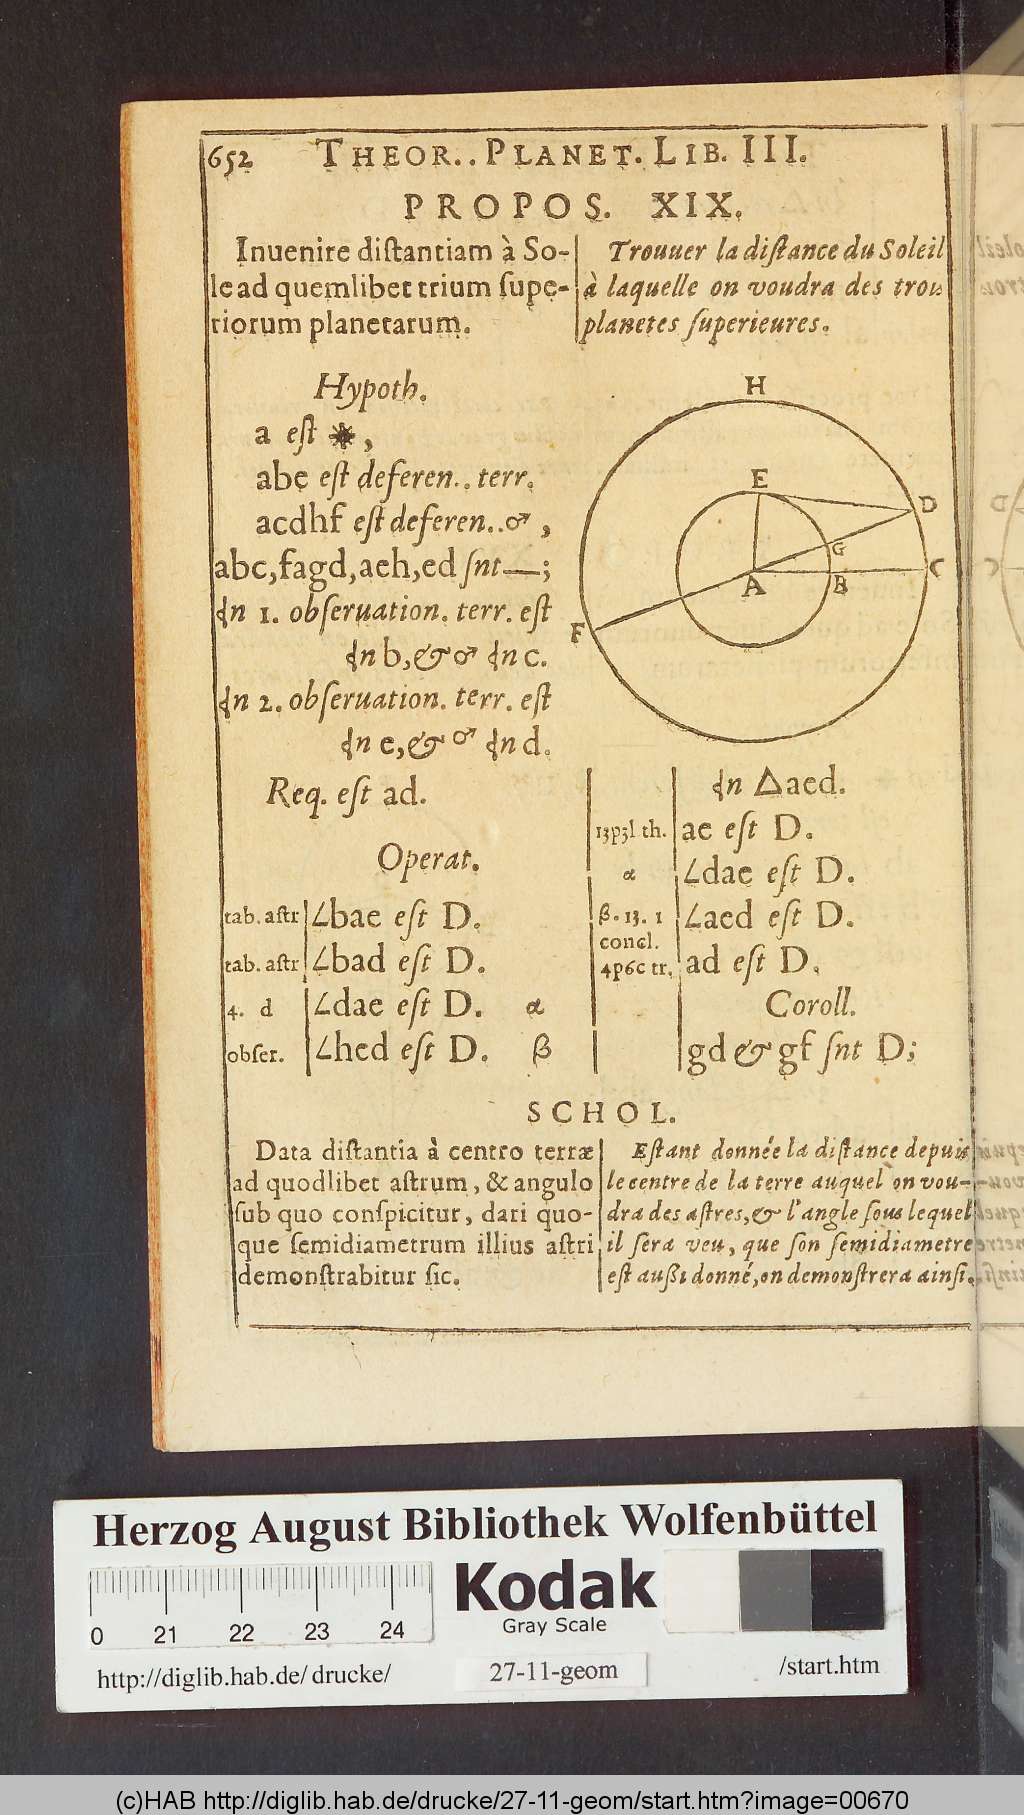 652 THEOR.. PLANET. LIB. III.
PROPOS. XIX.
Inuenire distantiam à So-
le ad quemlibet trium supe-
riorum planetarum.
Trouuer la distance du Soleil
à laquelle on voudra des trois
planetes superieures.
Hypoth.
a est ☀,
abe est deferen.. terr.
acdhf est deferen.. ♂,
abc, fagd, aeh, ed snt —;
In 1. obseruation. terr. est
In b, & ♂ In c.
In 2. obseruation. terr. est
In e, & ♂ In d.
Req. est ad.
H
E
D
G
A
B
C
F
Operat.
tab. astr ∠bae est D.
tab. astr ∠bad est D.
4. d ∠dae est D. α
obser. ∠hed est D. β
In △aed.
13p3l th. ae est D.
α ∠dae est D.
β. 13. 1 ∠aed est D.
concl.
4p6c tr. ad est D.
Coroll.
gd & gf snt D;
SCHOL.
Data distantia à centro terræ
ad quodlibet astrum, & angulo
sub quo conspicitur, dari quo-
que semidiametrum illius astri
demonstrabitur sic.
Estant donnée la distance depuis
le centre de la terre auquel on vou-
dra des astres, & l'angle sous lequel
il sera veu, que son semidiametre
est außi donné, on demonstrera ainsi.
Herzog August Bibliothek Wolfenbüttel
0 21 22 23 24
Kodak
Gray Scale
http://diglib.hab.de/drucke/ 27-11-geom /start.htm
(c)HAB http://diglib.hab.de/drucke/27-11-geom/start.htm?image=00670